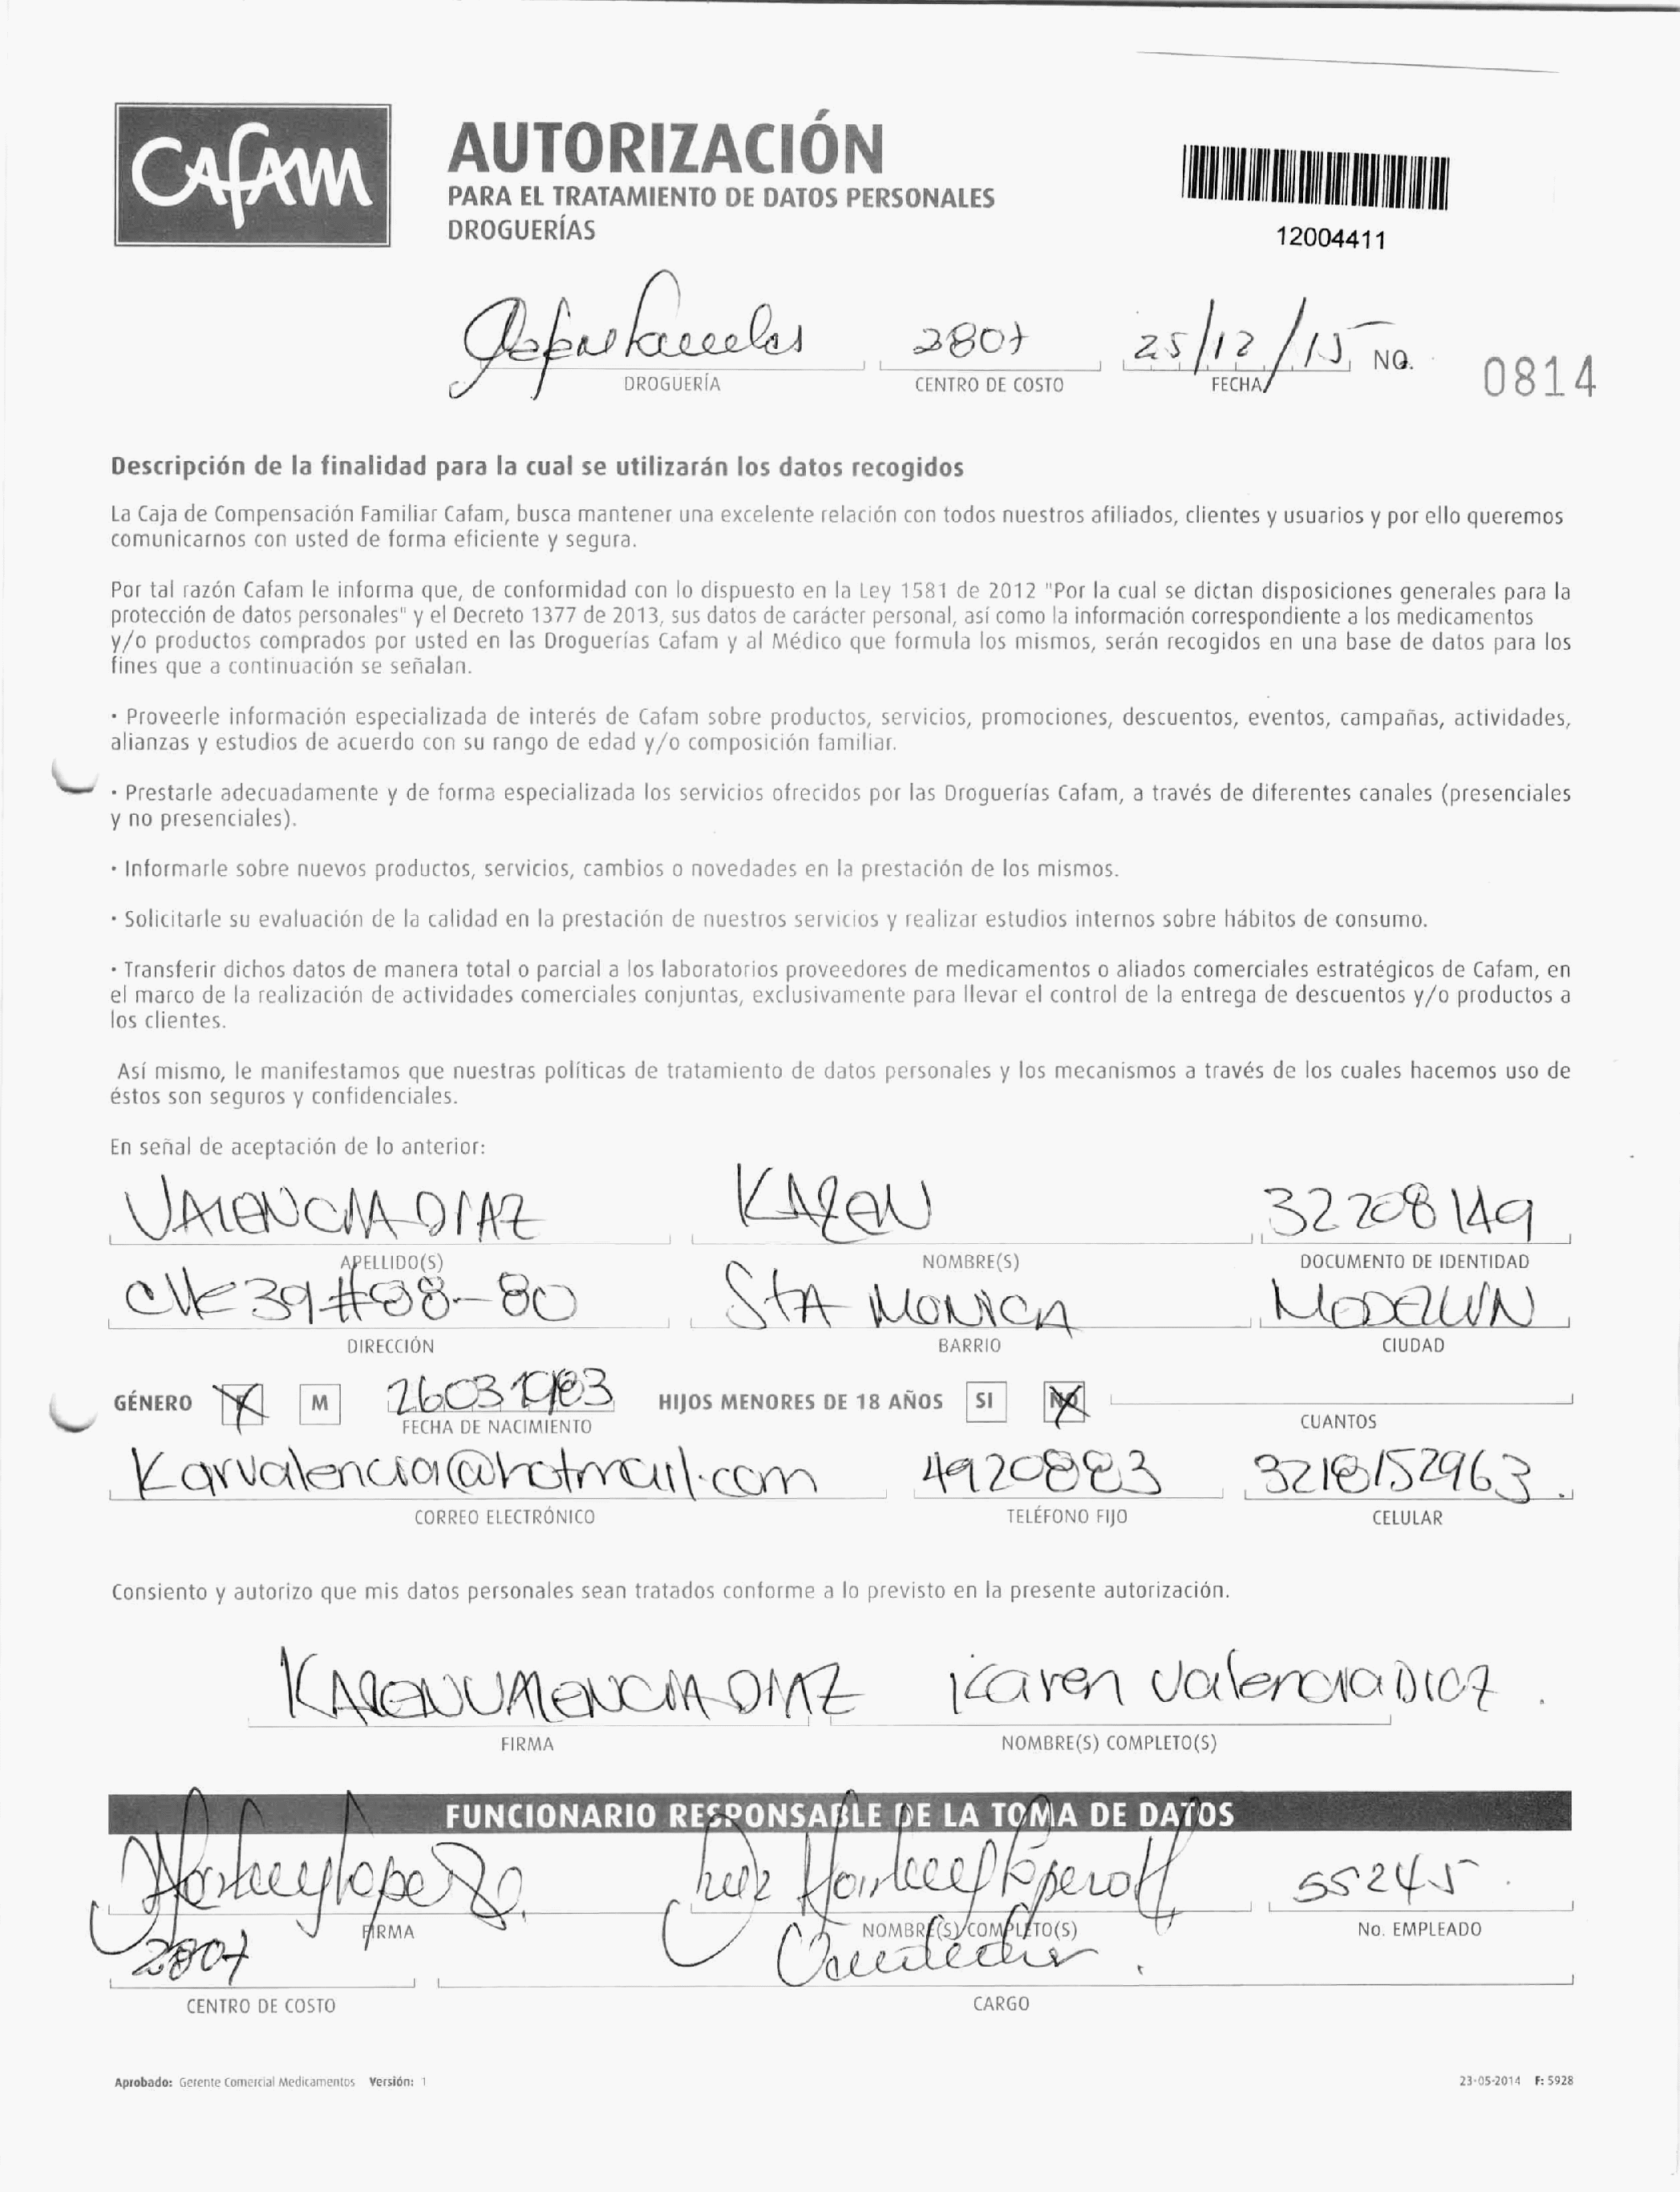 Cafam
AUTORIZACIÓN
PARA EL TRATAMIENTO DE DATOS PERSONALES
DROGUERÍAS
12004411
2807 25/12/15 NO. 0814
DROGUERÍA CENTRO DE COSTO FECHA
Descripción de la finalidad para la cual se utilizarán los datos recogidos
La Caja de Compensación Familiar Cafam, busca mantener una excelente relación con todos nuestros afiliados, clientes y usuarios y por ello queremos
comunicarnos con usted de forma eficiente y segura.
Por tal razón Cafam le informa que, de conformidad con lo dispuesto en la Ley 1581 de 2012 "Por la cual se dictan disposiciones generales para la
protección de datos personales" y el Decreto 1377 de 2013, sus datos de carácter personal, así como la información correspondiente a los medicamentos
y/o productos comprados por usted en las Droguerías Cafam y al Médico que formula los mismos, serán recogidos en una base de datos para los
fines que a continuación se señalan.
· Proveerle información especializada de interés de Cafam sobre productos, servicios, promociones, descuentos, eventos, campañas, actividades,
alianzas y estudios de acuerdo con su rango de edad y/o composición familiar.
· Prestarle adecuadamente y de forma especializada los servicios ofrecidos por las Droguerías Cafam, a través de diferentes canales (presenciales
y no presenciales).
· Informarle sobre nuevos productos, servicios, cambios o novedades en la prestación de los mismos.
· Solicitarle su evaluación de la calidad en la prestación de nuestros servicios y realizar estudios internos sobre hábitos de consumo.
· Transferir dichos datos de manera total o parcial a los laboratorios proveedores de medicamentos o aliados comerciales estratégicos de Cafam, en
el marco de la realización de actividades comerciales conjuntas, exclusivamente para llevar el control de la entrega de descuentos y/o productos a
los clientes.
Así mismo, le manifestamos que nuestras políticas de tratamiento de datos personales y los mecanismos a través de los cuales hacemos uso de
éstos son seguros y confidenciales.
En señal de aceptación de lo anterior:
VALENCIA DIAZ KAREN 32208149
APELLIDO(S) NOMBRE(S) DOCUMENTO DE IDENTIDAD
39 #88-80 STA MONICA MEDELLIN
DIRECCIÓN BARRIO CIUDAD
GÉNERO F M 26031983 HIJOS MENORES DE 18 AÑOS SI NO
FECHA DE NACIMIENTO CUANTOS
Karvalencia@hotmail.com 4920883 3218152963
CORREO ELECTRÓNICO TELÉFONO FIJO CELULAR
Consiento y autorizo que mis datos personales sean tratados conforme a lo previsto en la presente autorización.
KAREN VALENCIA DIAZ Karen Valencia Diaz
FIRMA NOMBRE(S) COMPLETO(S)
FUNCIONARIO RESPONSABLE DE LA TOMA DE DATOS
55245
FIRMA NOMBRE(S) COMPLETO(S) No. EMPLEADO
2807
CENTRO DE COSTO CARGO
Aprobado: Gerente Comercial Medicamentos Versión: 1 23-05-2014 F: 5928